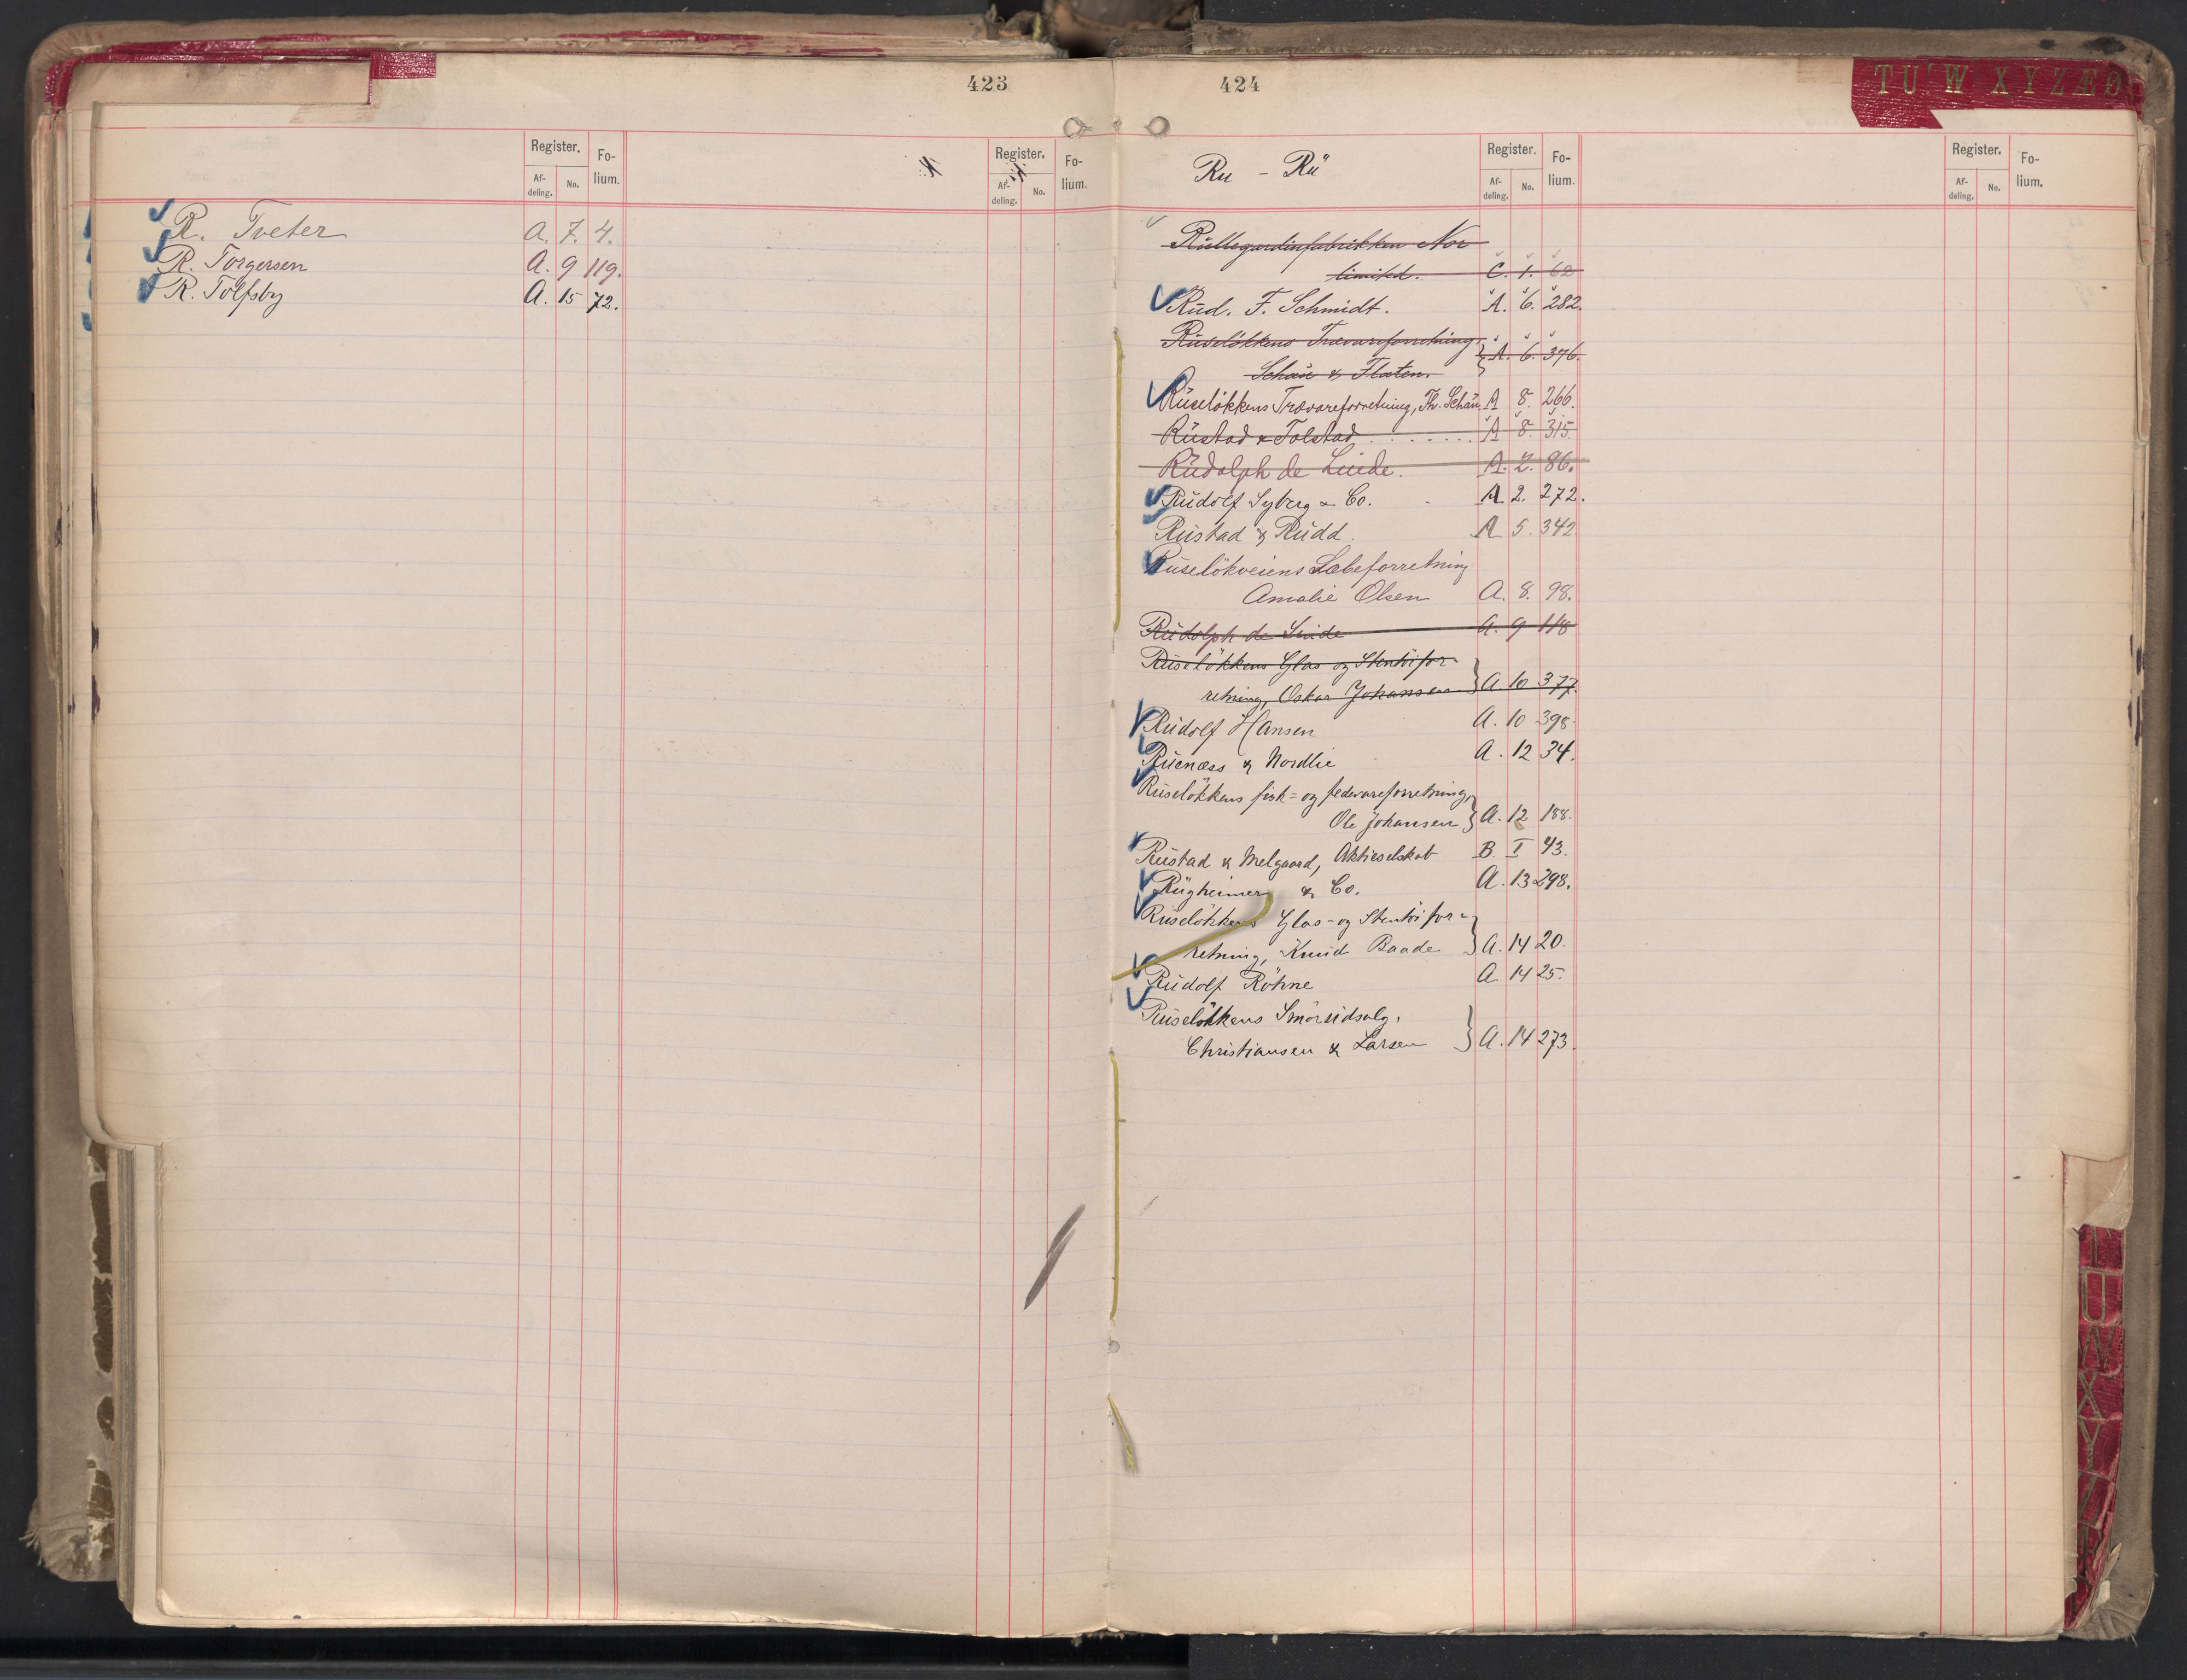 423
Register. Fo-
Af- No. lium.
deling.
Register. Fo-
Af- No. lium.
deling.
R. Tveter A. 7. 4.
R. Torgersen A. 9 119.
R. Tolfsby A. 15 72.
424
TU W XYZÆØ
Ru - Rü
Register. Fo-
Af- No. lium.
deling.
Register. Fo-
Af- No. lium.
deling.
Rullegardinfabrikken Nor
limited. C. 1. 62
Rud. F. Schmidt. A. 6. 282.
Ruseløkkens Trævareforretning,
Schau & Flaten. } A. 6. 376.
Ruseløkkens Trævareforretning, Th. Schau. A 8. 266.
Rustad & Tolstad ........ A 8. 315.
Rudolph de Linde. A. 2. 86.
Rudolf Syberg & Co. A 2. 272.
Rustad & Rudd. A 5. 342.
Ruseløkveiens Sæbeforretning
Amalie Olsen A. 8. 98.
Rudolph de Linde A. 9 118
Ruseløkkens Glas og Stentöifor-
retning, Oskar Johansen } A. 10 377.
Rudolf Hansen A. 10 398.
Ruenæss & Nordlie A. 12 34.
Ruseløkkens fisk= og fedevareforretning,
Ole Johansen } A. 12 188.
Rustad & Melgaard, Aktieselskab B. I 43.
Rügheimer & Co. A. 13 298.
Ruseløkkens Glas- og Stentöifor-
retning, Knud Baade } A. 14 20.
Rudolf Röhne A. 14 25.
Ruseløkkens Smörudsalg.
Christiansen & Larsen } A. 14 273.
U
W
X
Y